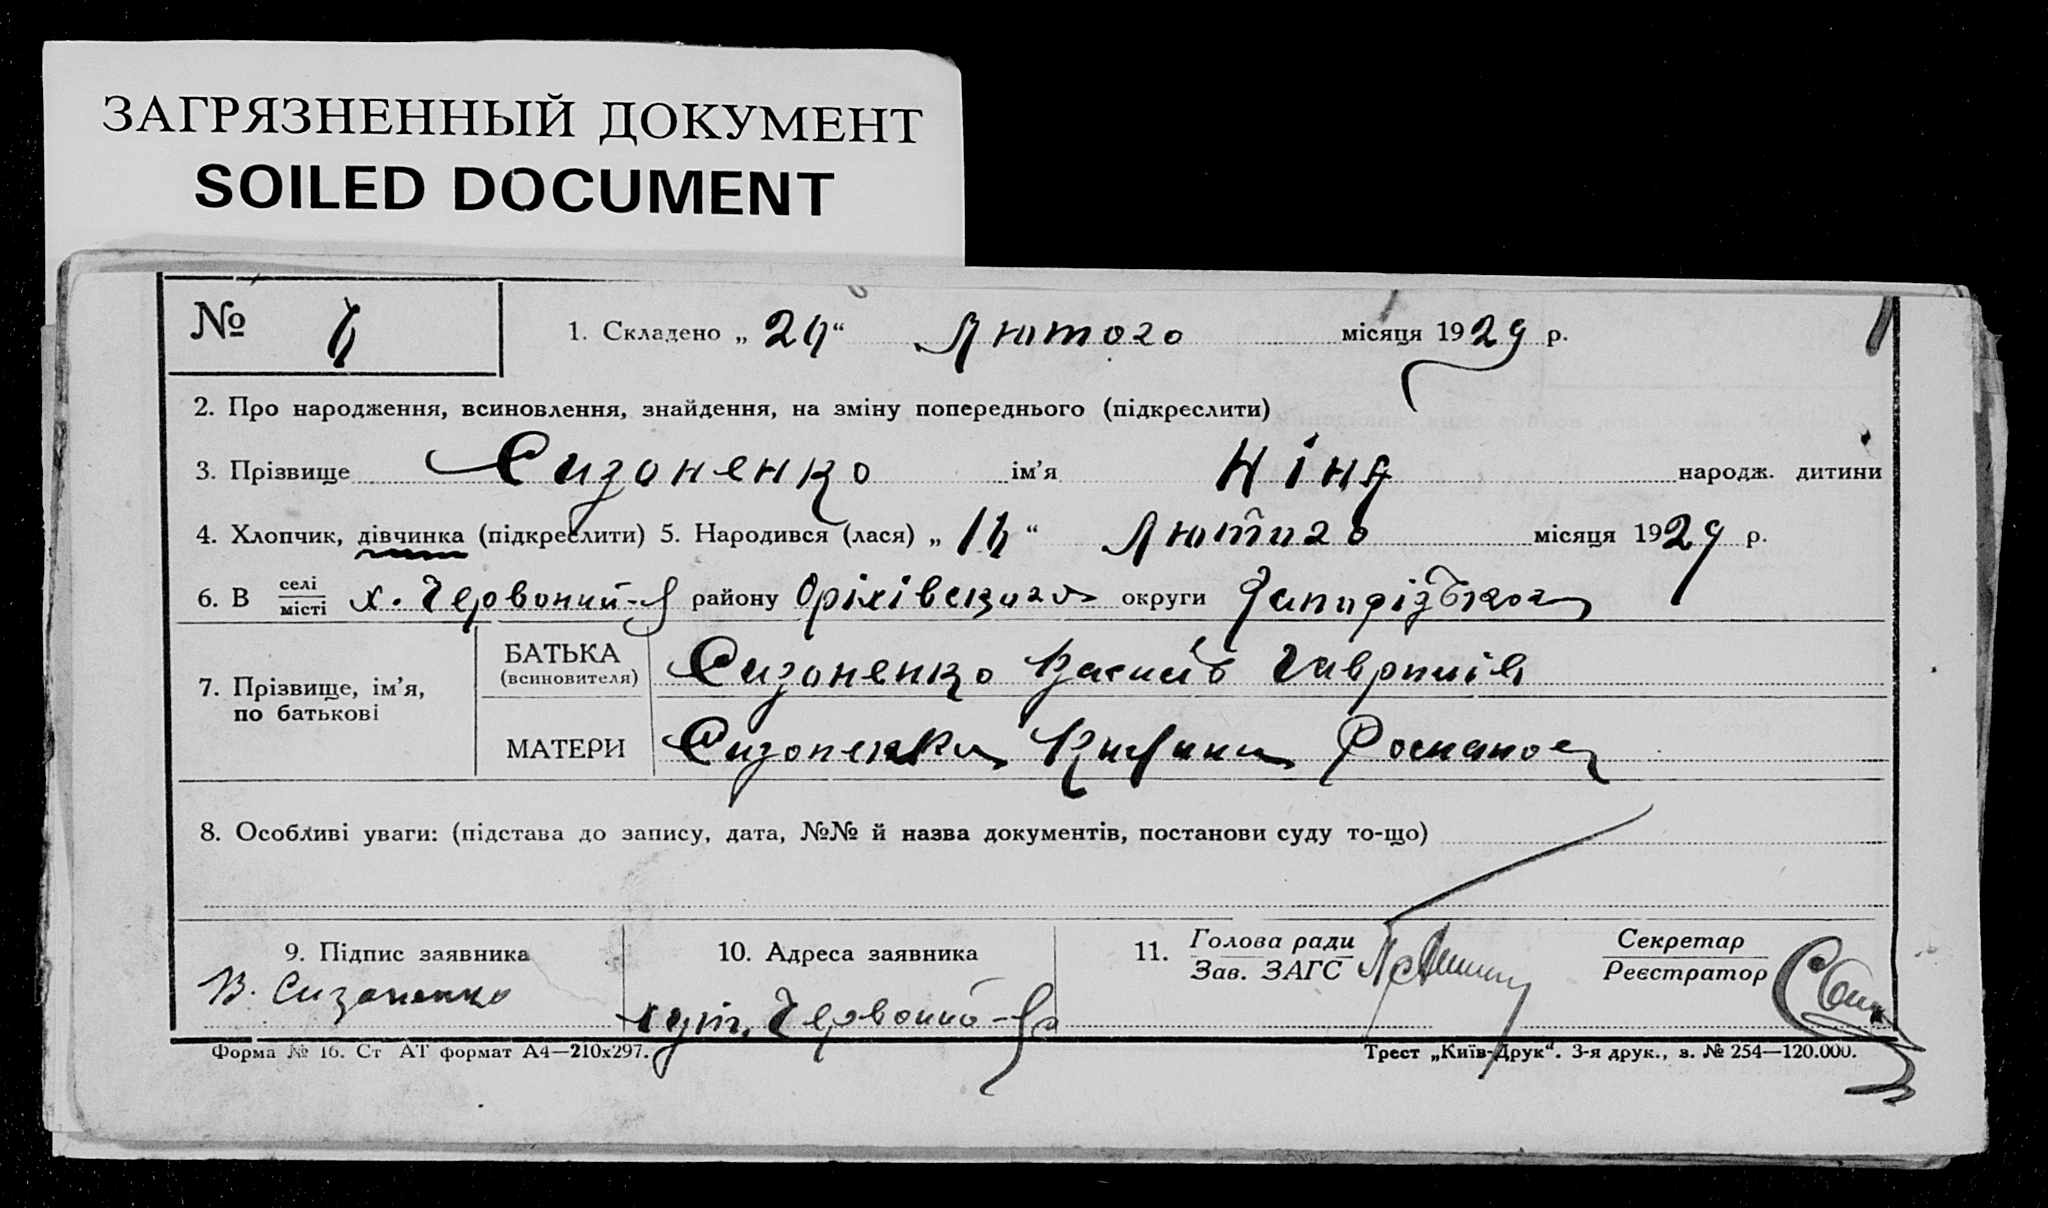 ЗАГРЯЗНЕННЫЙ ДОКУМЕНТ
SOILED DOCUMENT
№ 4 1. Складено „ 24 “ Лютого місяця 1929 р.
2. Про народження, всиновлення, знайдення, на зміну попереднього (підкреслити)
3. Прізвище Сизоненко ім’я Ніна народж. дитини
4. Хлопчик, дівчинка (підкреслити) 5. Народився (лася) „ 14 “ Лютого місяця 1929 р.
6. В селі місті х. Червоний-Яр району Оріхівского округи Запорізького
7. Прізвище, ім’я, по батькові
БАТЬКА (всиновителя) Сизоненко Василь Гаврилів
МАТЕРИ Сизоненко
8. Особливі уваги: (підстава до запису, дата, №№ й назва документів, постанови суду то-що)
9. Підпис заявника 10. Адреса заявника 11. Голова ради Зав. ЗАГС Секретар Реєстратор
В. Сизоненко хут. Червоний-Яр
Форма № 16. Ст АТ формат А4—210х297. Трест „Київ-Друк“. 3-я друк., з. № 254—120.000.